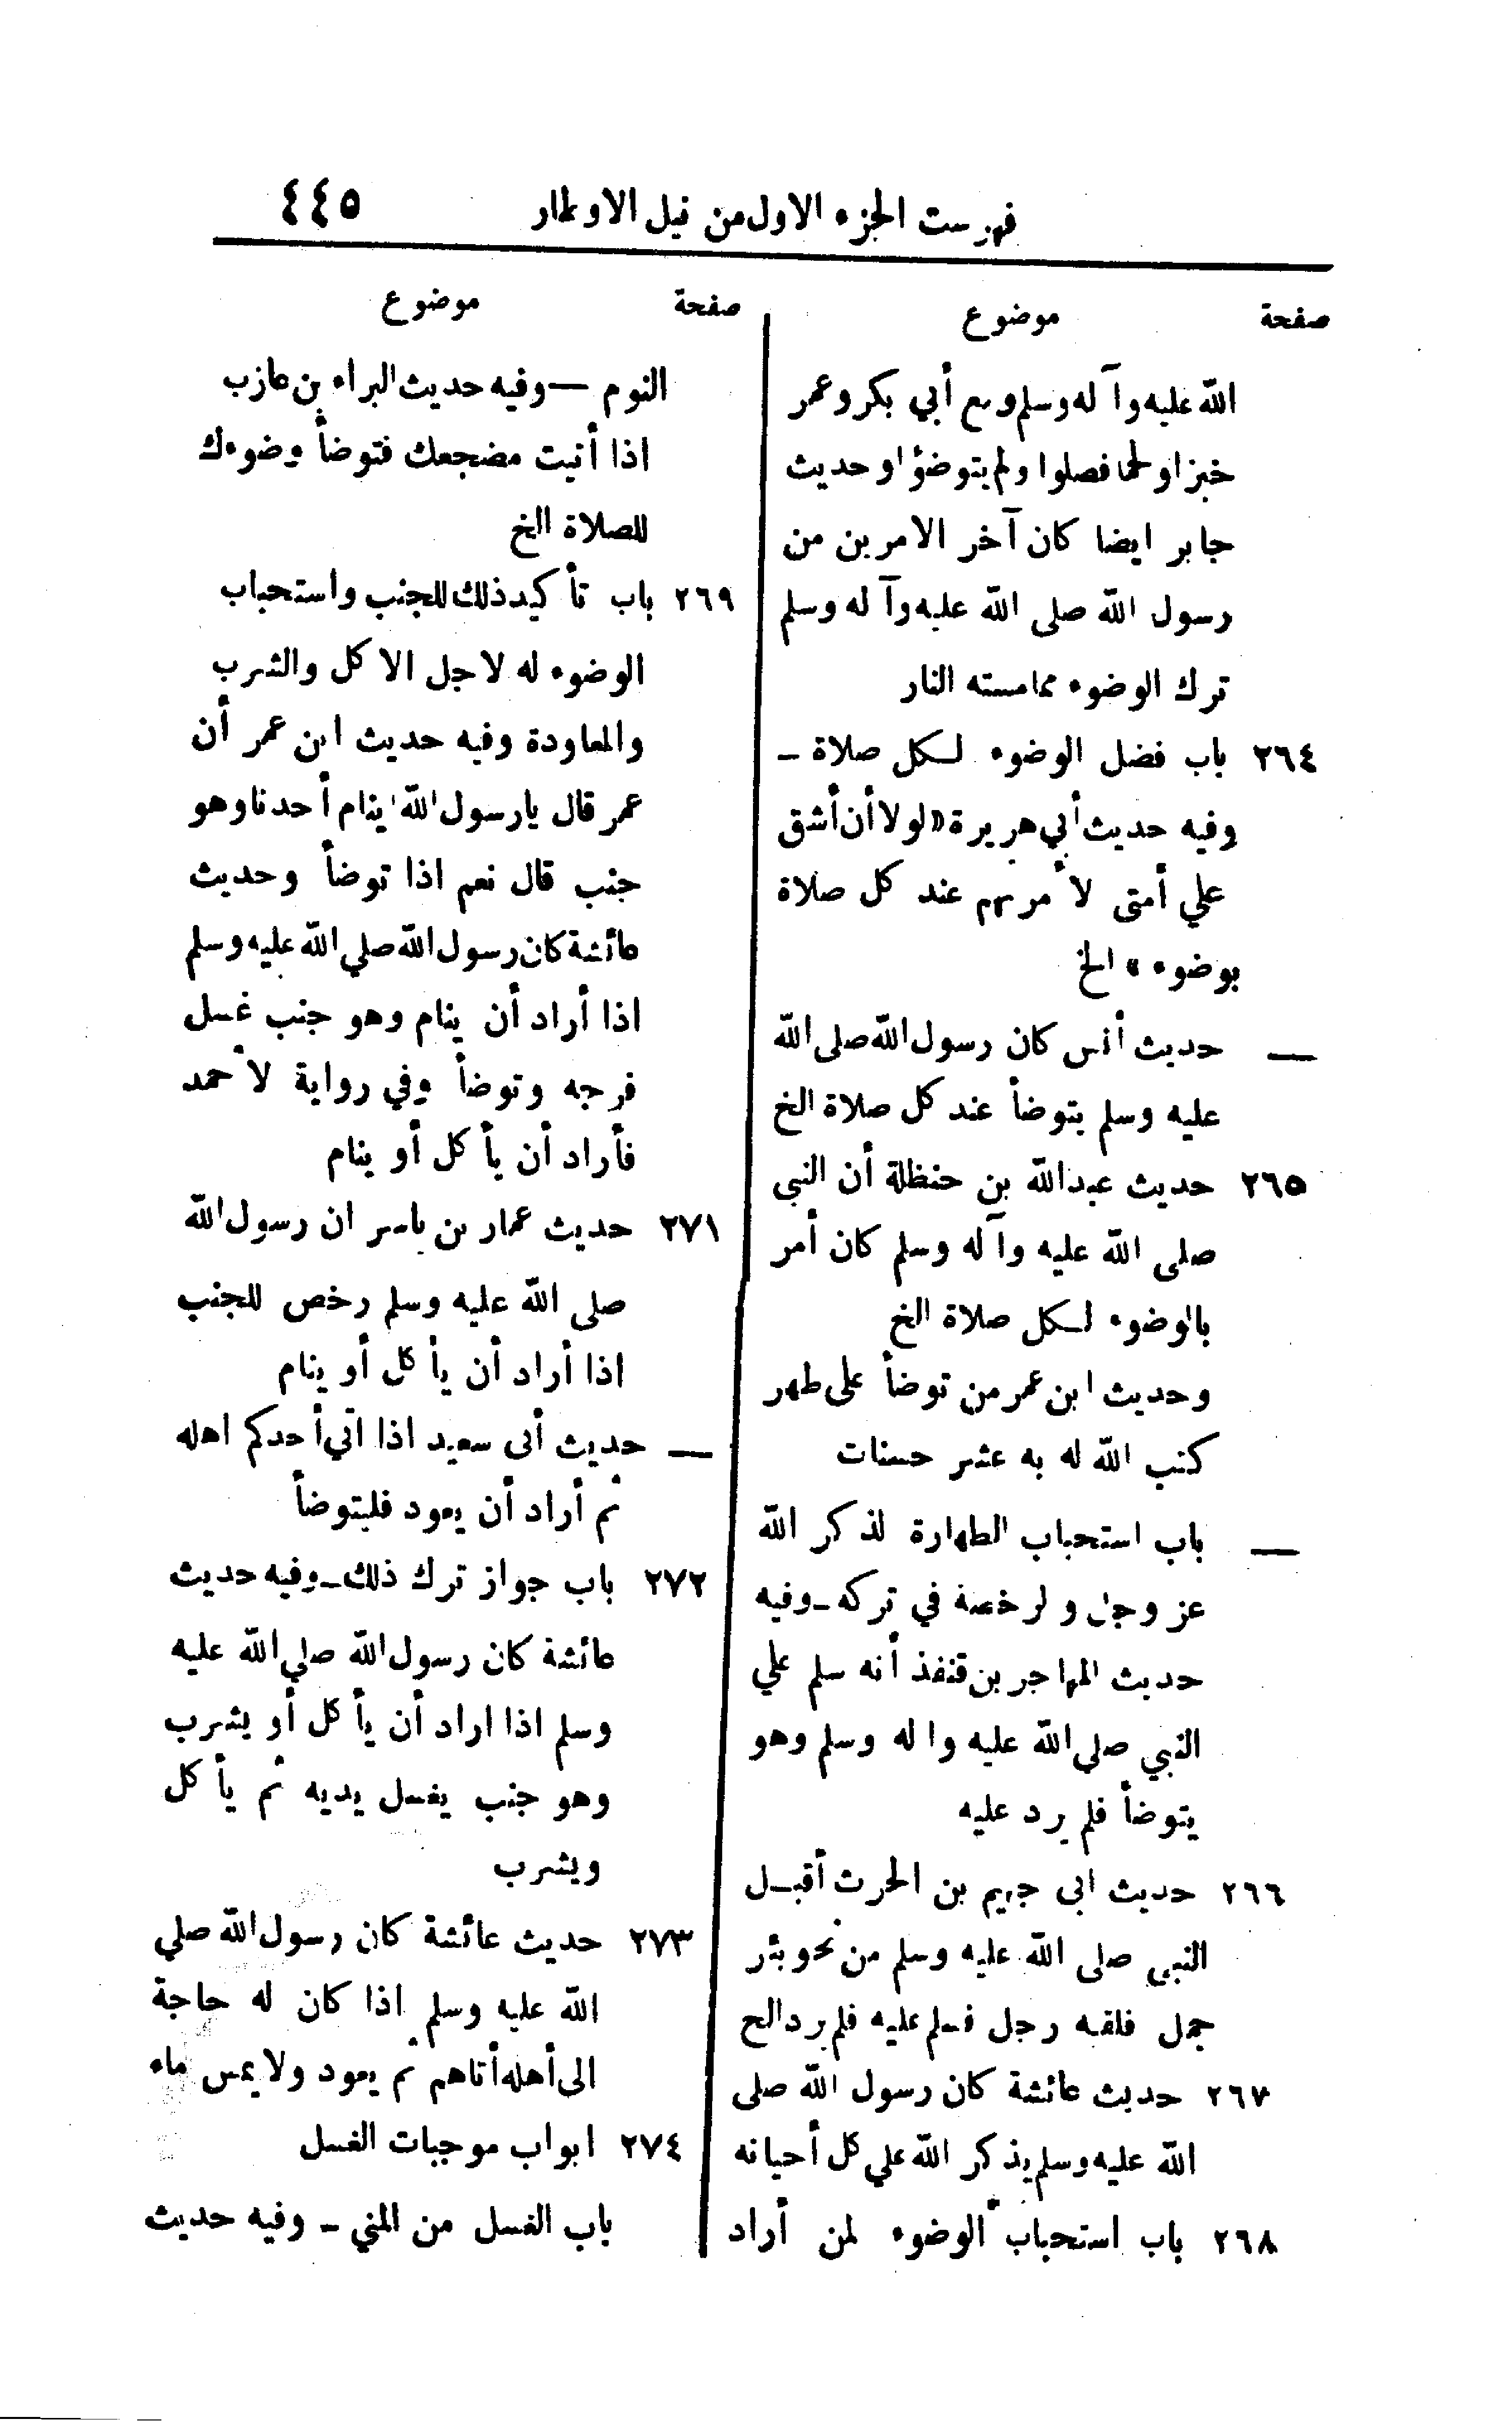 فهرست الجزء الاول من نيل الاوطار ٤٤٥
صفحة موضوع
الله عليه وآله وسلم ومع أبي بكر وعمر
خبزا ولحما فصلوا ولم يتوضؤا وحديث
جابر ايضا كان آخر الامرين من
رسول الله صلى الله عليه وآله وسلم
ترك الوضوء مما مسته النار
٢٦٤ باب فضل الوضوء لكل صلاة -
وفيه حديث أبي هريرة «لولا أن أشق
علي أمتى لأمرتهم عند كل صلاة
بوضوء» الخ
— حديث أنس كان رسول الله صلى الله
عليه وسلم يتوضأ عند كل صلاة الخ
٢٦٥ حديث عبد الله بن حنظلة أن النبى
صلى الله عليه وآله وسلم كان أمر
بالوضوء لكل صلاة الخ
وحديث ابن عمر من توضأ على طهر
كتب الله له به عشر حسنات
— باب استحباب الطهارة لذكر الله
عز وجل والرخصة في تركه - وفيه
حديث المهاجر بن قنفذ أنه سلم علي
النبي صلي الله عليه واله وسلم وهو
يتوضأ فلم يرد عليه
٢٦٦ حديث ابى جهيم بن الحرث أقبل
النبى صلى الله عليه وسلم من نحو بئر
جمل فلقيه رجل فسلم عليه فلم يرد الخ
٢٦٧ حديث عائشة كان رسول الله صلى
الله عليه وسلم يذكر الله علي كل أحيانه
٢٦٨ باب استحباب الوضوء لمن أراد
صفحة موضوع
النوم — وفيه حديث البراء بن عازب
اذا أتيت مضجعك فتوضأ وضوءك
للصلاة الخ
٢٦٩ باب تأكيد ذلك للجنب واستحباب
الوضوء له لاجل الاكل والشرب
والمعاودة وفيه حديث ابن عمر أن
عمر قال يارسول الله اينام أحدنا وهو
جنب قال نعم اذا توضأ وحديث
عائشة كان رسول الله صلي الله عليه وسلم
اذا أراد أن ينام وهو جنب غسل
فرجه وتوضأ وفي رواية لأحمد
فأراد أن يأكل أو ينام
٢٧١ حديث عمار بن ياسر ان رسول الله
صلى الله عليه وسلم رخص للجنب
اذا أراد أن يأكل أو ينام
— حديث أبى سعيد اذا اتي أحدكم اهله
ثم أراد أن يعود فليتوضأ
٢٧٢ باب جواز ترك ذلك - وفيه حديث
عائشة كان رسول الله صلي الله عليه
وسلم اذا اراد أن يأكل أو يشرب
وهو جنب يغسل يديه ثم يأكل
ويشرب
٢٧٣ حديث عائشة كان رسول الله صلي
الله عليه وسلم اذا كان له حاجة
الى أهله أتاهم ثم يعود ولا يمس ماء
٢٧٤ ابواب موجبات الغسل
باب الغسل من المني - وفيه حديث